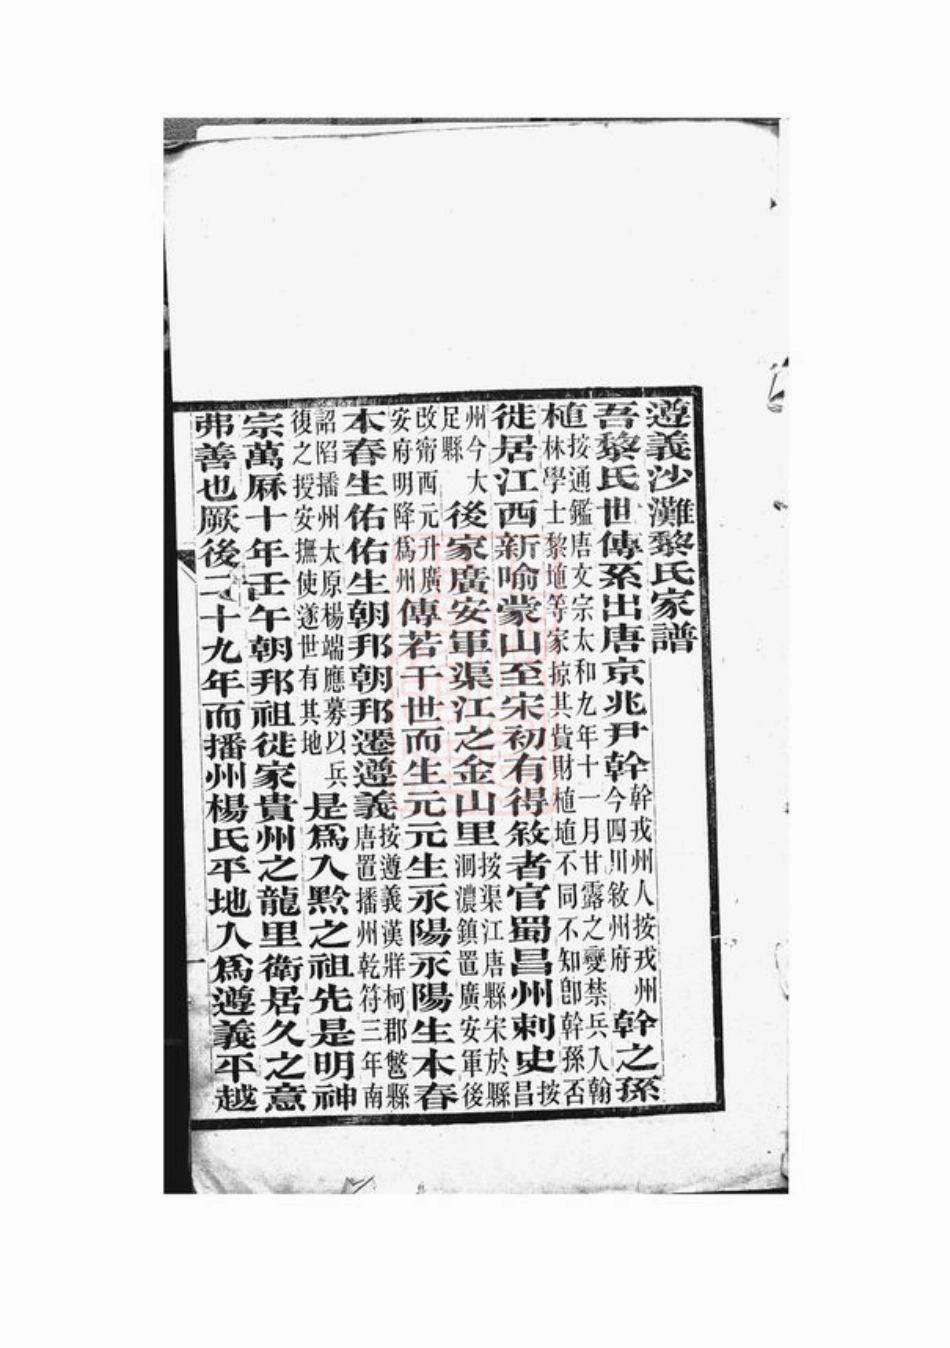 遵義沙灘黎氏家譜
吾黎氏世傳系出唐京兆尹幹幹戎州人按戎州今四川敘州府幹之孫
植按通鑑唐文宗太和九年十一月甘露之變禁兵入翰林學士黎埴等家掠其貲財植埴不同不知卽幹孫否
徙居江西新喻蒙山至宋初有得敘者官蜀昌州刺史按昌
州今大足縣後家廣安軍渠江之金山里按渠江唐縣宋於縣洄濃鎮置廣安軍後
改甯西元升廣安府明降爲州傳若干世而生元元生永陽永陽生本春
本春生佑佑生朝邦朝邦遷遵義按遵義漢牂柯郡鄨縣唐置播州乾符三年南
詔陷播州太原楊端應募以兵復之授安撫使遂世有其地是爲入黔之祖先是明神
宗萬厤十年壬午朝邦祖徙家貴州之龍里衛居久之意
弗善也厥後二十九年而播州楊氏平地入爲遵義平越